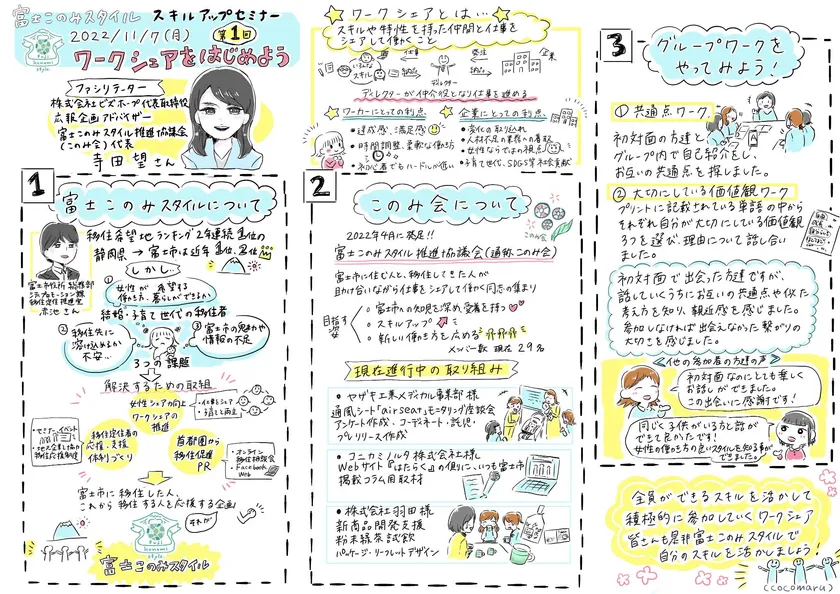 富士このみスタイル スキルアップセミナー
2022/11/7(月) 第1回
ワークシェアをはじめよう
Fuji
konomi
style
ファシリテーター
株式会社ビズホープ代表取締役
広報企画アドバイザー
富士このみスタイル推進協議会
(このみ会)代表
寺田 望さん
ワークシェアとは…
スキルや特性を持った仲間と仕事を
シェアして働くこと
仕事
発注
企業
いろんな
スキル
納品
納品
ディレクター
ディレクターが仲介役となり仕事を進める
ワーカーにとっての利点
・達成感、満足感
・時間調整、柔軟な働き方
・初心者でもハードルが低い
企業にとっての利点
・変化の取り入れ
・人材不足の業務への着手
・女性ならではの視点
・子育て世代、SDGs等社会貢献
1
富士このみスタイルについて
移住希望地ランキング2年連続1位の
静岡県 → 富士市は近年
しかし…
富士市役所 総務部
シティプロモーション課
移住定住推進室
赤池さん
①女性が希望する
働き方、暮らしができるか
結婚・子育て世代の移住者
②移住先に
溶け込めるか
不安…
③富士市の魅力や
情報の不足
3つの課題
解決するための取組
女性シェアの向上
ワークシェアの
推進
・仕事をシェア
・子育てと両立
移住定住者の
応援・支援
体制づくり
首都圏から
移住促進
PR
・オンライン
移住相談会
・Facebook
・Web
富士市に移住した人、
これから移住する人を応援する企画
それが
Fuji
konomi
style
富士このみスタイル
2
このみ会について
このみ会
2022年4月に発足!!
富士このみスタイル推進協議会(通称このみ会)
富士市に住む人と、移住してきた人が
助け合いながら仕事をシェアして働く同志の集まり
目指す
姿
○ 富士市への知見を深め、愛着を持つ
○ スキルアップ
○ 新しい働き方を広める
メンバー数 現在29名
現在進行中の取り組み
・ヤザキ工業メディカル事業部様
通風シート「airseat」モニタリング座談会
アンケート作成・コーディネート・託児・
プレリリース作成
・コニカミノルタ株式会社様
Webサイト『はたらく』の傍りに、いつも富士市
掲載コラム用取材
・株式会社羽田様
新商品開発支援
粉末緑茶試飲
パッケージ・リーフレットデザイン
3
グループワークを
やってみよう!
①共通点ワーク
初対面の方達と
グループ内で自己紹介をし、
お互いの共通点を探しました。
②大切にしている価値観ワーク
プリントに記載されている単語の中から
それぞれ自分が大切にしている価値観
3つを選び、理由について話し合い
ました。
初対面で出会った方達ですが、
話していくうちにお互いの共通点や似た
考え方を知り、親近感を感じました。
参加しなければ出会えなかった繋がりの
大切さを感じました。
他の参加者の方達の声
初対面なのにとても楽しく
お話しができました。
この出会いに感謝です!
同じく子供がいる方と話が
できて良かったです!
女性の働き方の良いスタイルを知る事が
できました。
全員ができるスキルを活かして
積極的に参加していくワークシェア
皆さんも是非富士このみスタイルで
自分のスキルを活かしましょう!
(cocomaru)